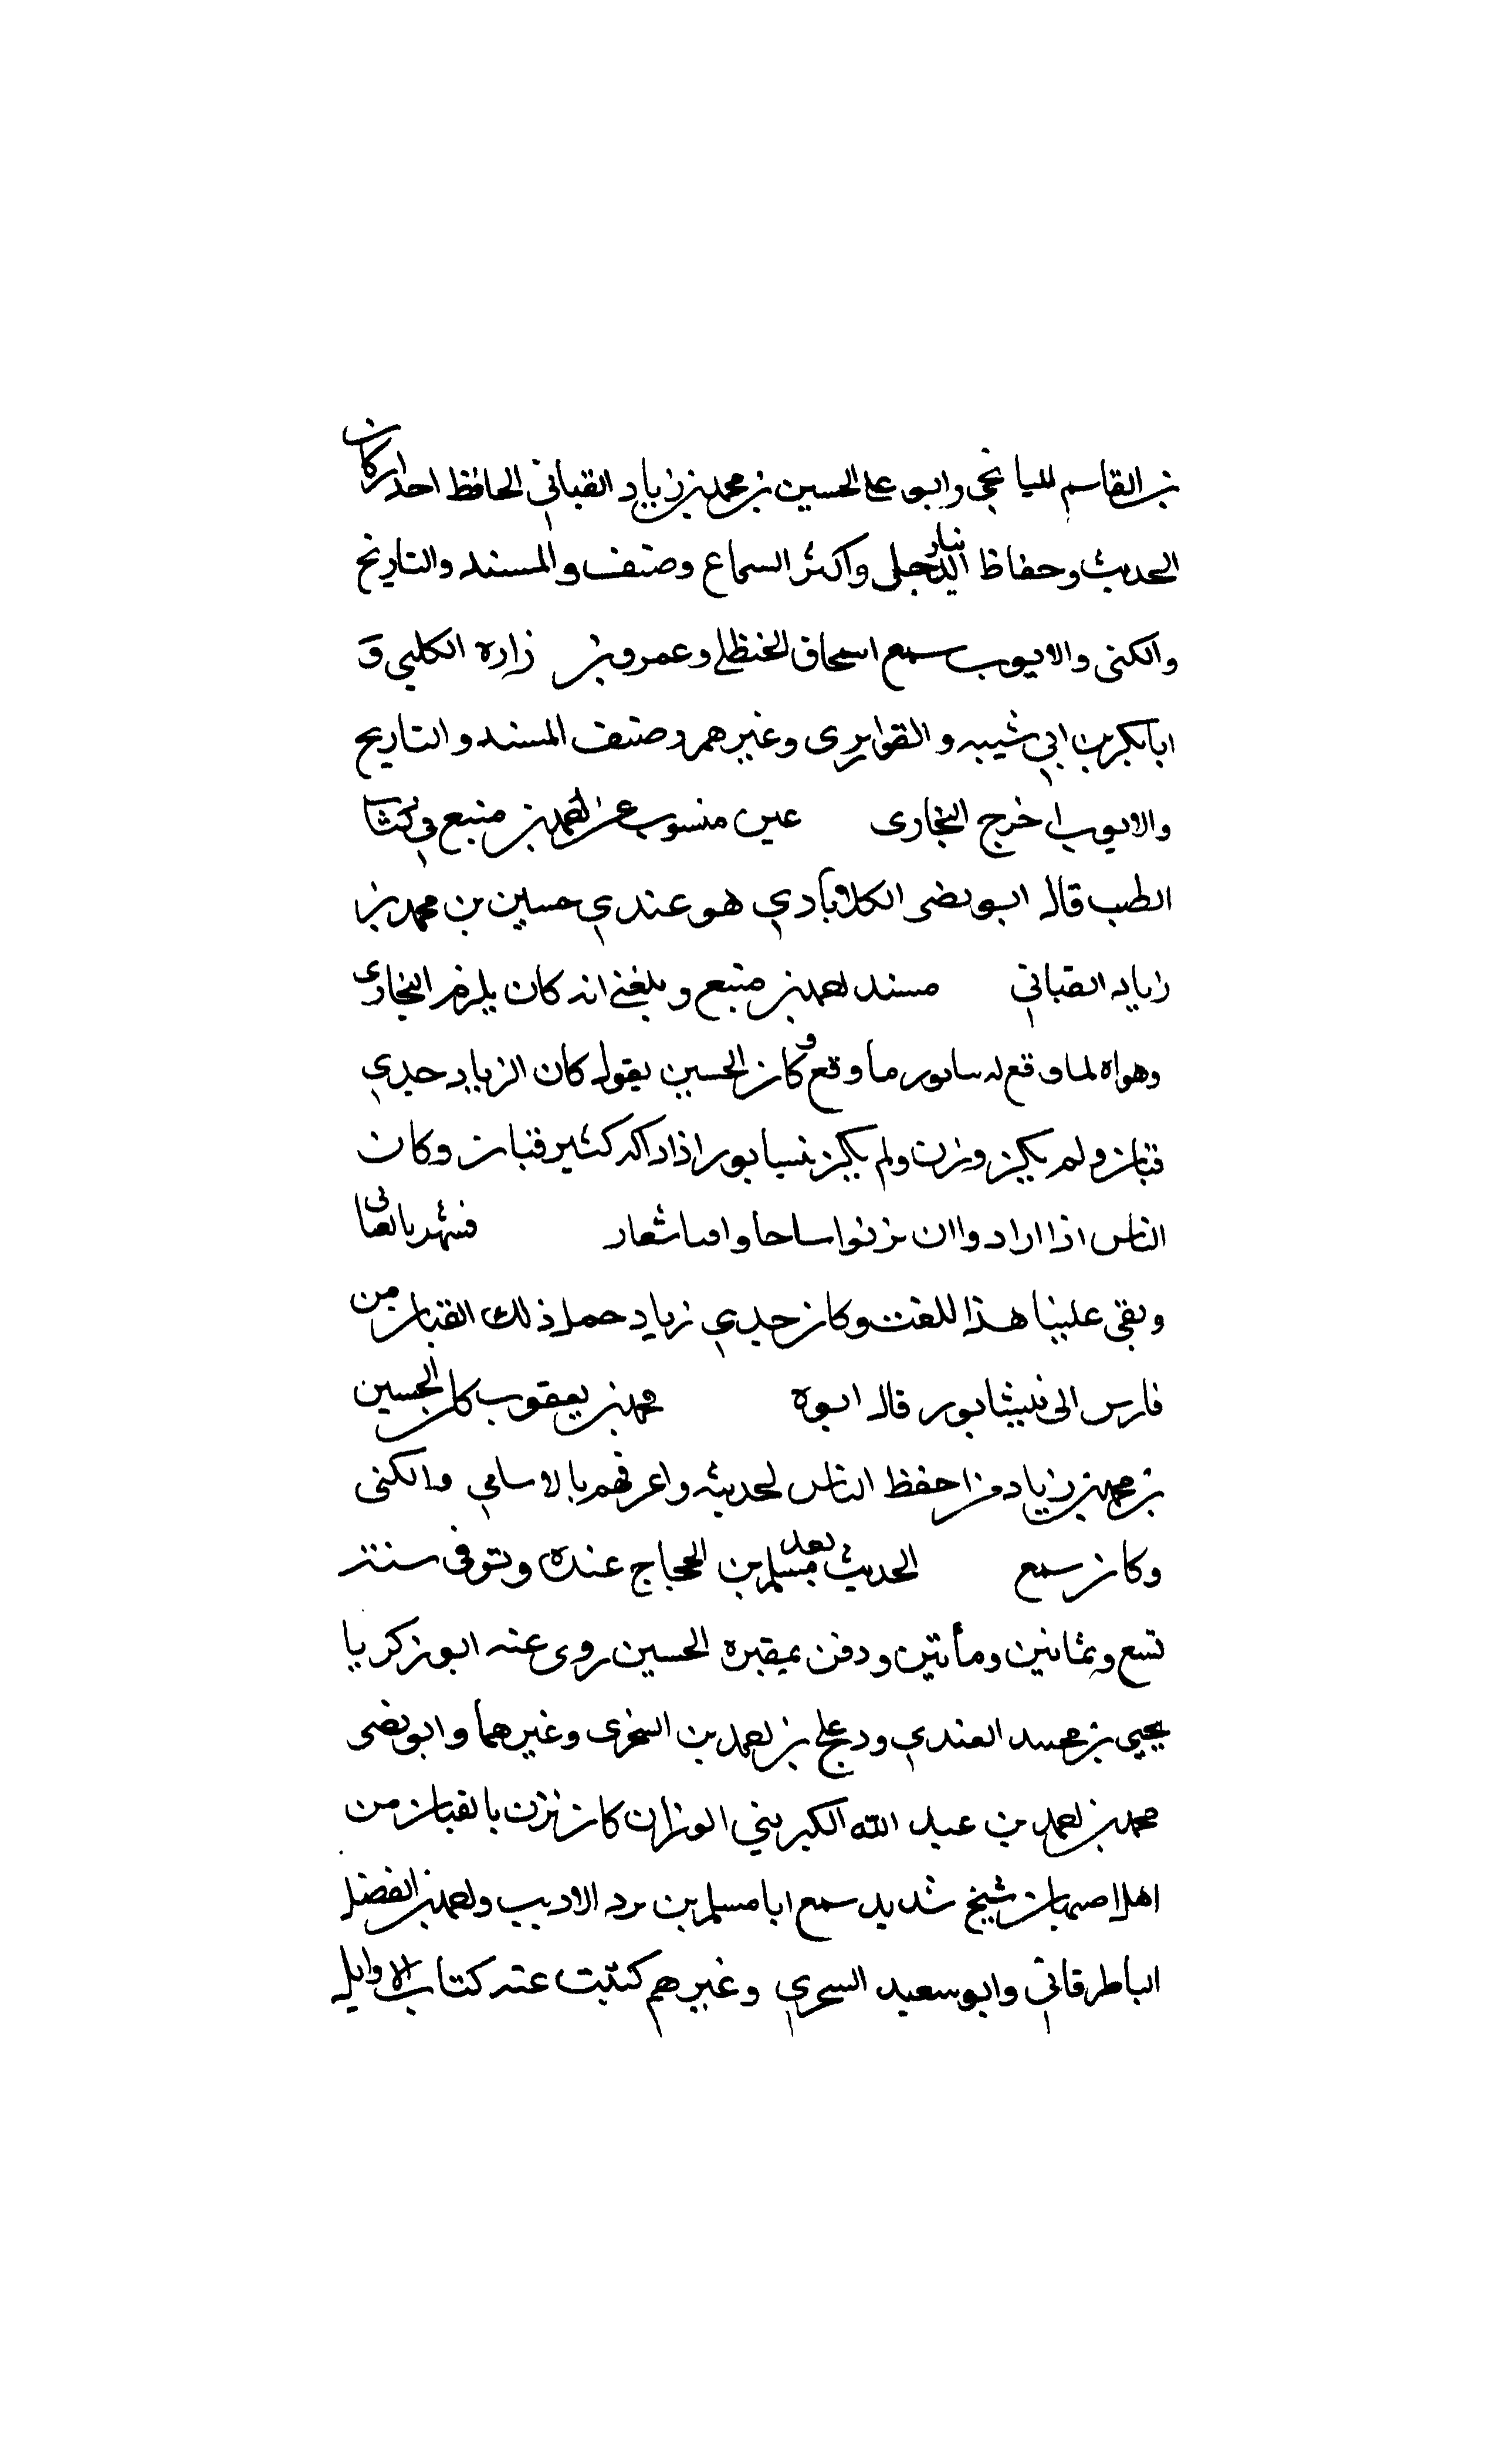 بن القاسم الميانجي وابو علي الحسين بن محمد بن زياد القباني الحافظ احد اركان
الحديث وحفاظ الدنيا رحل واكثر السماع وصنف والمسند والتاريخ
والكنى والابوب سمع اسحاق الحنظلي وعمرو بن زاره الكلبي و
ابا بكر بن ابي شيبه و القواريرى وغيرهم وصنف المسند و التاريخ
والابوب اخرج البخارى عين منسوب عن احمد بن منيع في كتا
الطب قال ابو نصر الكلاباذي هو عندي حسين بن محمد بن
زياد القباني مسند احمد بن منيع و بلغني انه كان يلزم البخارى
وهواه لما وقع له سابور ما وقع و كان الحسين يقول كان الزياد جدي
قبان ولم يكن وزن ولم يكن نسيابور اذاداك كثير قبان وكان
الناس اذا ارادوا ان يزنوا ساحا و امىا شعار فشهر بالقبانى
وبقى علينا هذا اللغت وكان جدي زياد حمل ذلك القبان من
فارس الى نيشابور قال ابوه محمد بن يعقوب كان الحسين
بن محمد بن زياد من احفظ الناس لحديثه واعرفهم بالاسامي والكنى
وكان سمع الحديث بعد مسلم بن الحجاج عنده وتوفى سنة
تسع وثمانين ومأتين ودفن بمقبره الحسين روى عنه ابو زكريا
يحيي بن محمد العندي ودعلج بن احمد بن السخرى وغيرهما وابو نصر
محمد بن احمد بن عبد الله الكبريني الوزان كان نزن بالقبان من
اهل اصبهان شيخ شديد سمع ابا مسلم بن برد الاديب واحمد بن الفضل
الباطرقاني وابو سعيد السحري وغيرهم كتبت عنه كتاب الاوايل